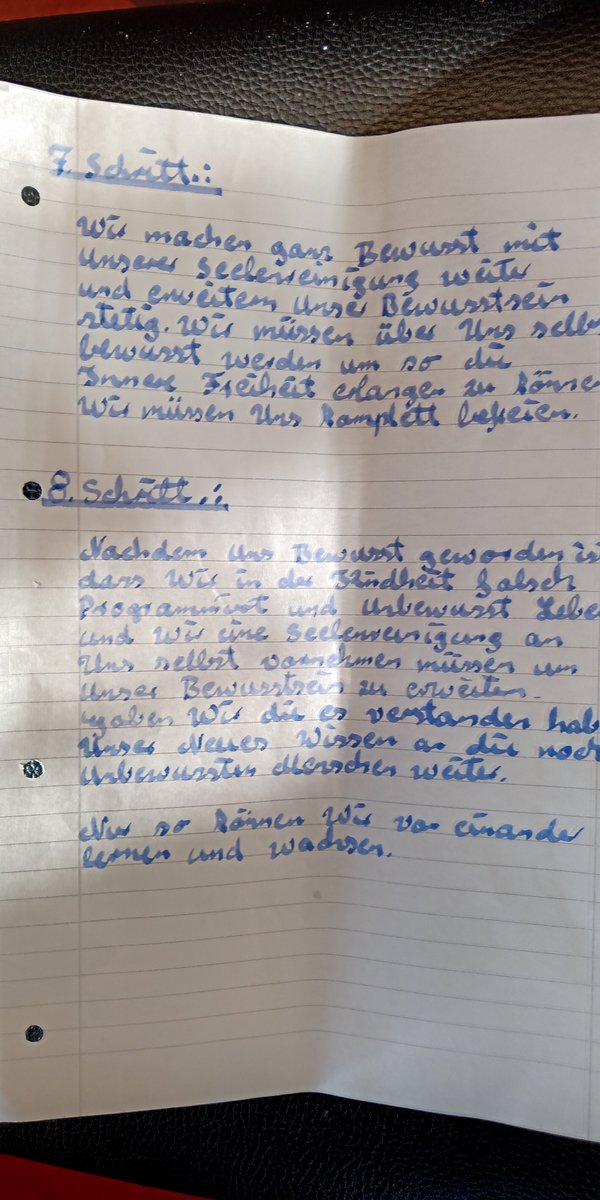 7. Schritt.:
Wir machen ganz Bewusst mit
Unserer Seelenreinigung weiter
und erweitern Unser Bewusstsein
stetig. Wir müssen über Uns selbs
bewusst werden um so die
Innere Freiheit erlangen zu könne
Wir müssen Uns komplett befreien.
8. Schritt.:
Nachdem Uns Bewusst geworden is
dass Wir in der Kindheit falsch
Programmiert und Unbewusst Lebe
und Wir eine Seelenreinigung an
Uns selbst vornehmen müssen um
Unser Bewusstsein zu erweitern.
gaben Wir die es verstanden hab
Unser Neues Wissen an die noch
Unbewussten Menschen weiter.
Nur so können Wir von einander
lernen und wachsen.